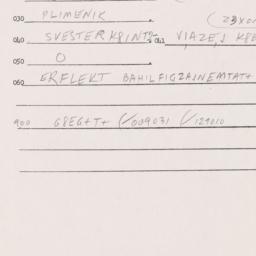 030 PLIMENIK (23X0
040 SVESTER KRINT 041 VJAZEJ KRE
050 O
060 ERFLEKT BAHILFIGZAINEMTAT+
900 G8EG+T+ (/009031 (/129010